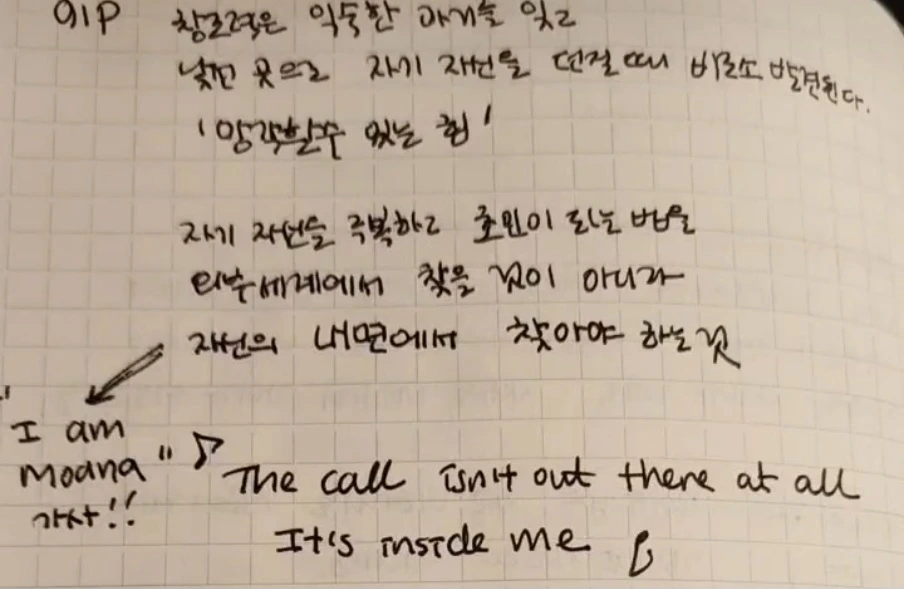 91P 창조력은 익숙한 아기를 잊고
낯선 곳으로 자기 자신을 던질 때 비로소 발견된다.
'망각할 수 있는 힘'
자기 자신을 극복하고 초인이 되는 법을
외부세계에서 찾을 것이 아니라
자신의 내면에서 찾아야 하는 것
"I am
Moana" ♪
가사!!
The call isn't out there at all
It's inside me